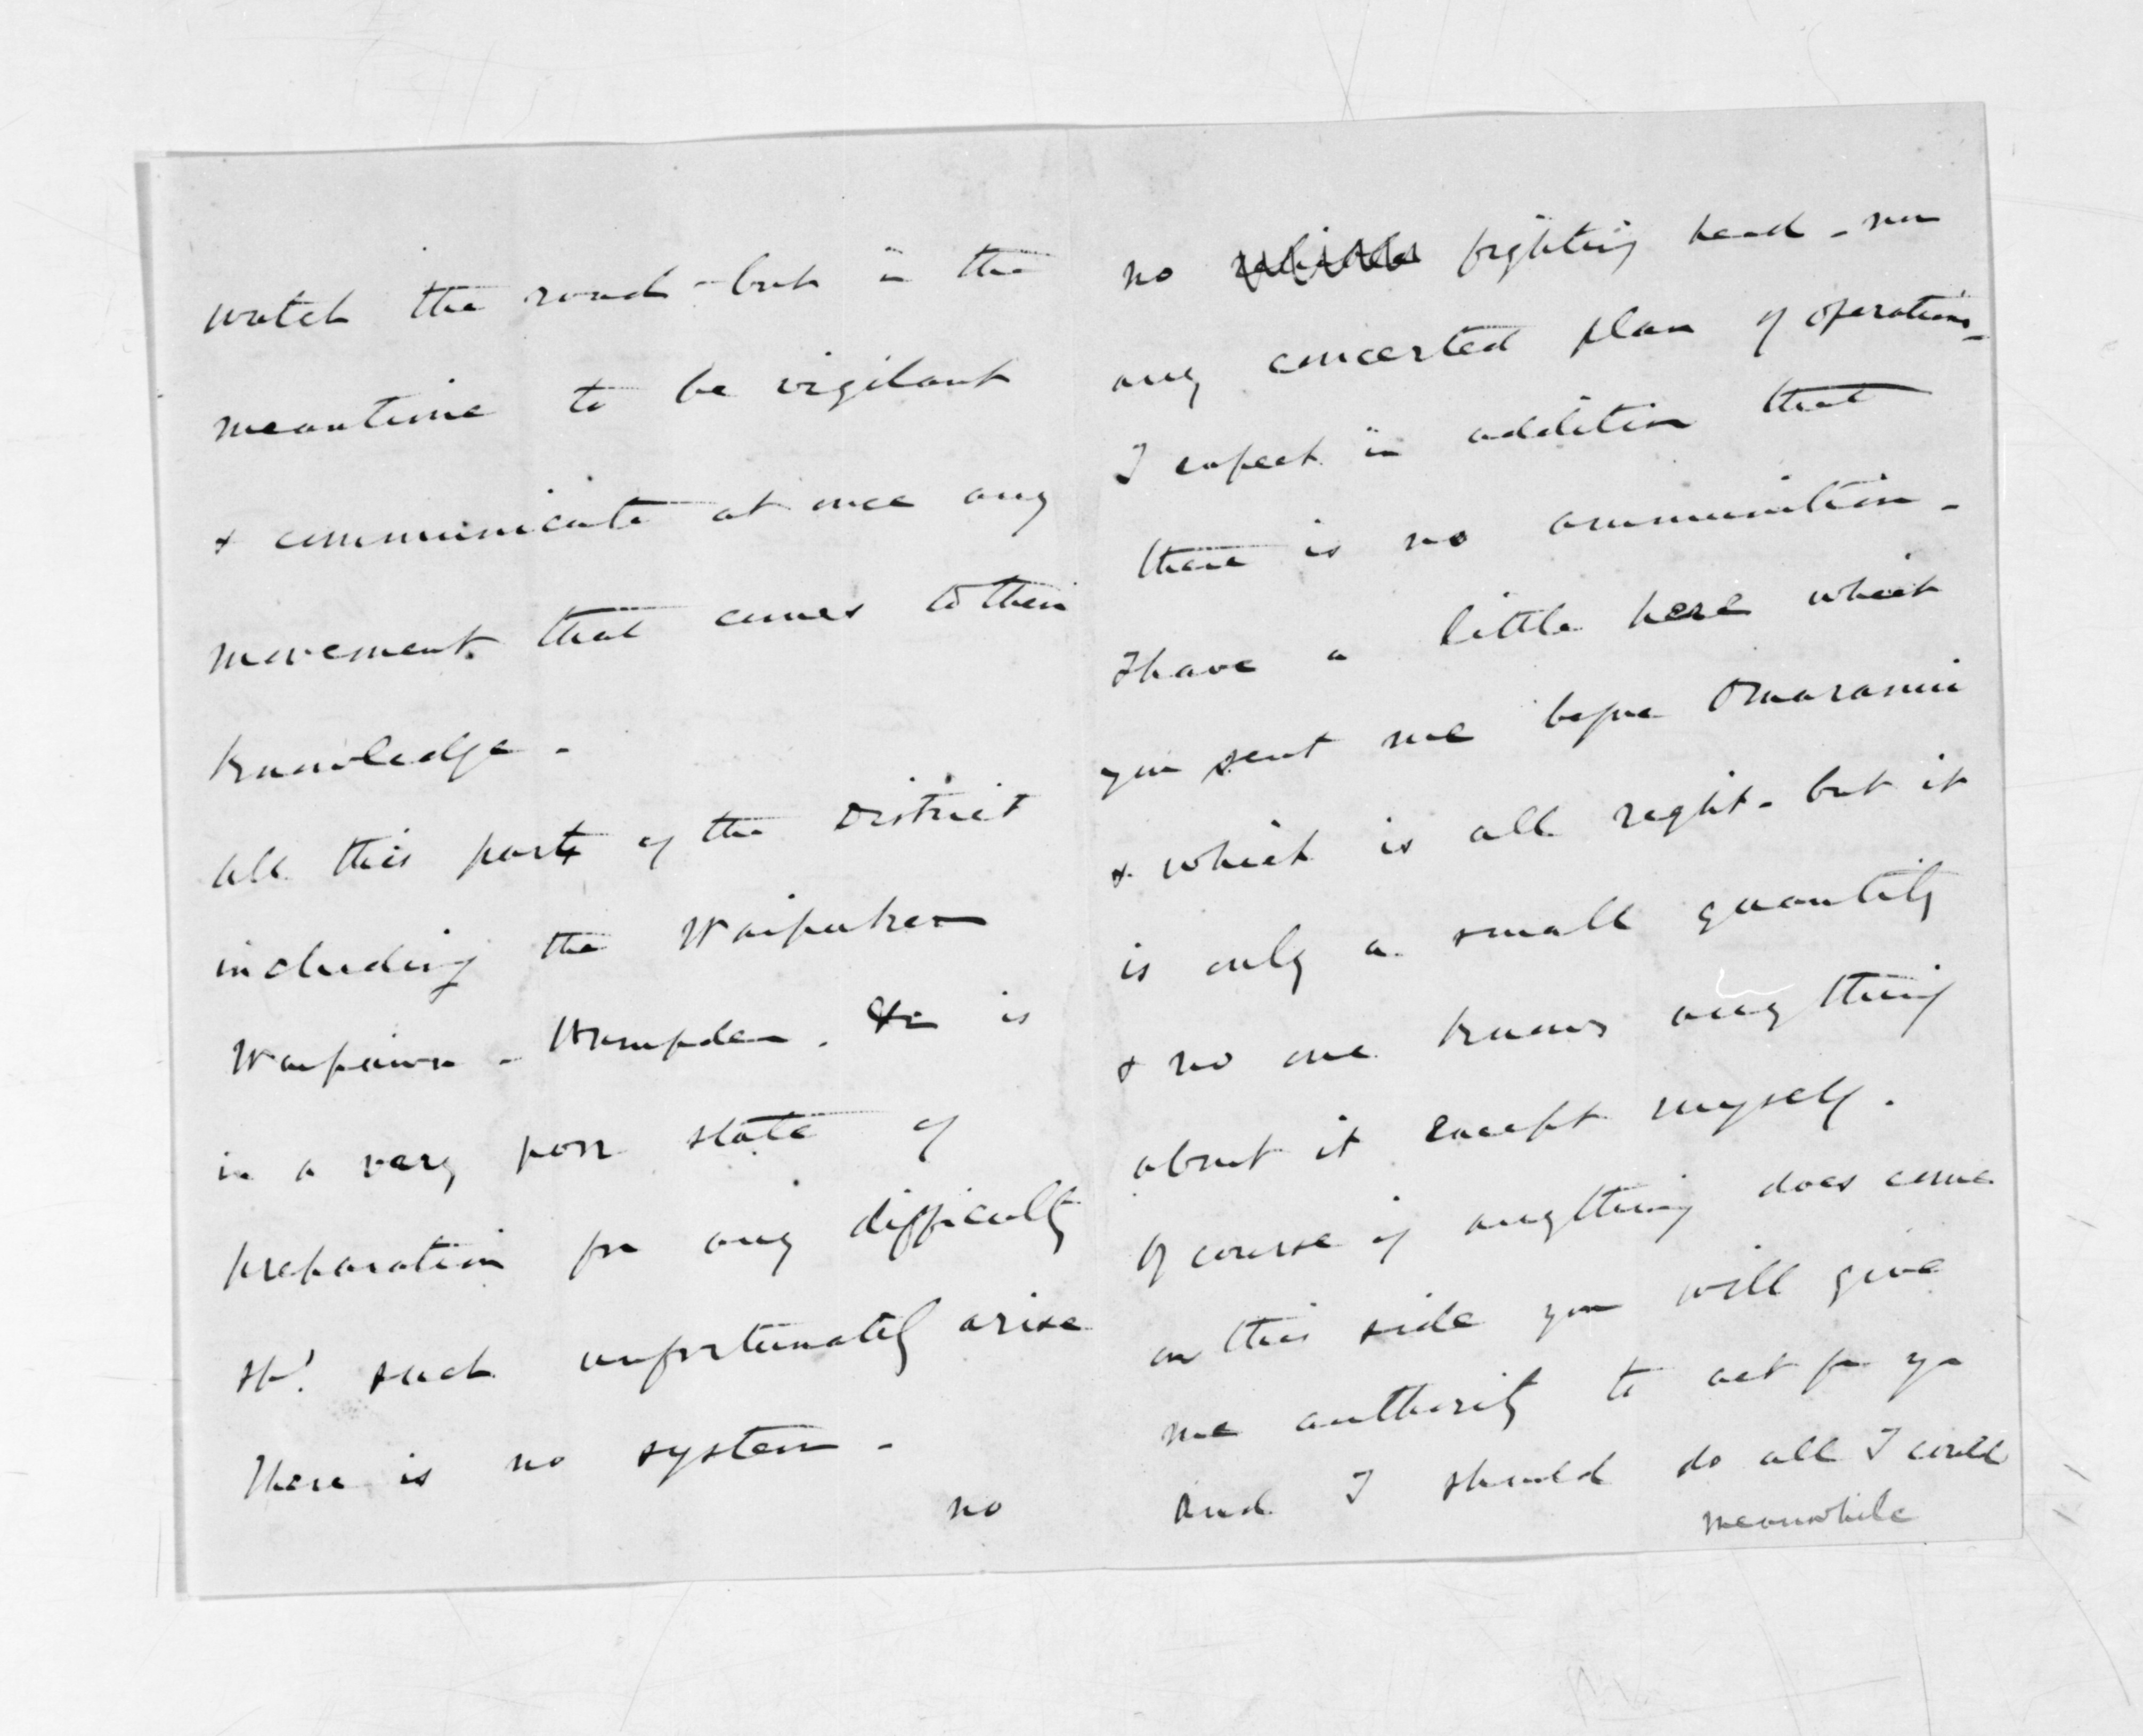 watch the road - but in the
meantime to be vigilant
& communicate at once any
movement that comes to their
knowledge -
all this part of the District
including the Waipukur
Waipawa - Hampden. &c is
in a very poor state of
preparation for any difficulty
shd. such unfortunately arise
There is no system -
no
no fighting head - nor
any concerted plan of operations -
I expect in addition that
there is no ammunition -
I have a little here which
you sent me before Omaranui
& which is all right - but it
is only a small quantity
& no one knows anything
about it except myself.
Of course if anything does come
on this side you will give
me authority to act for you
And I should do all I could
meanwhile